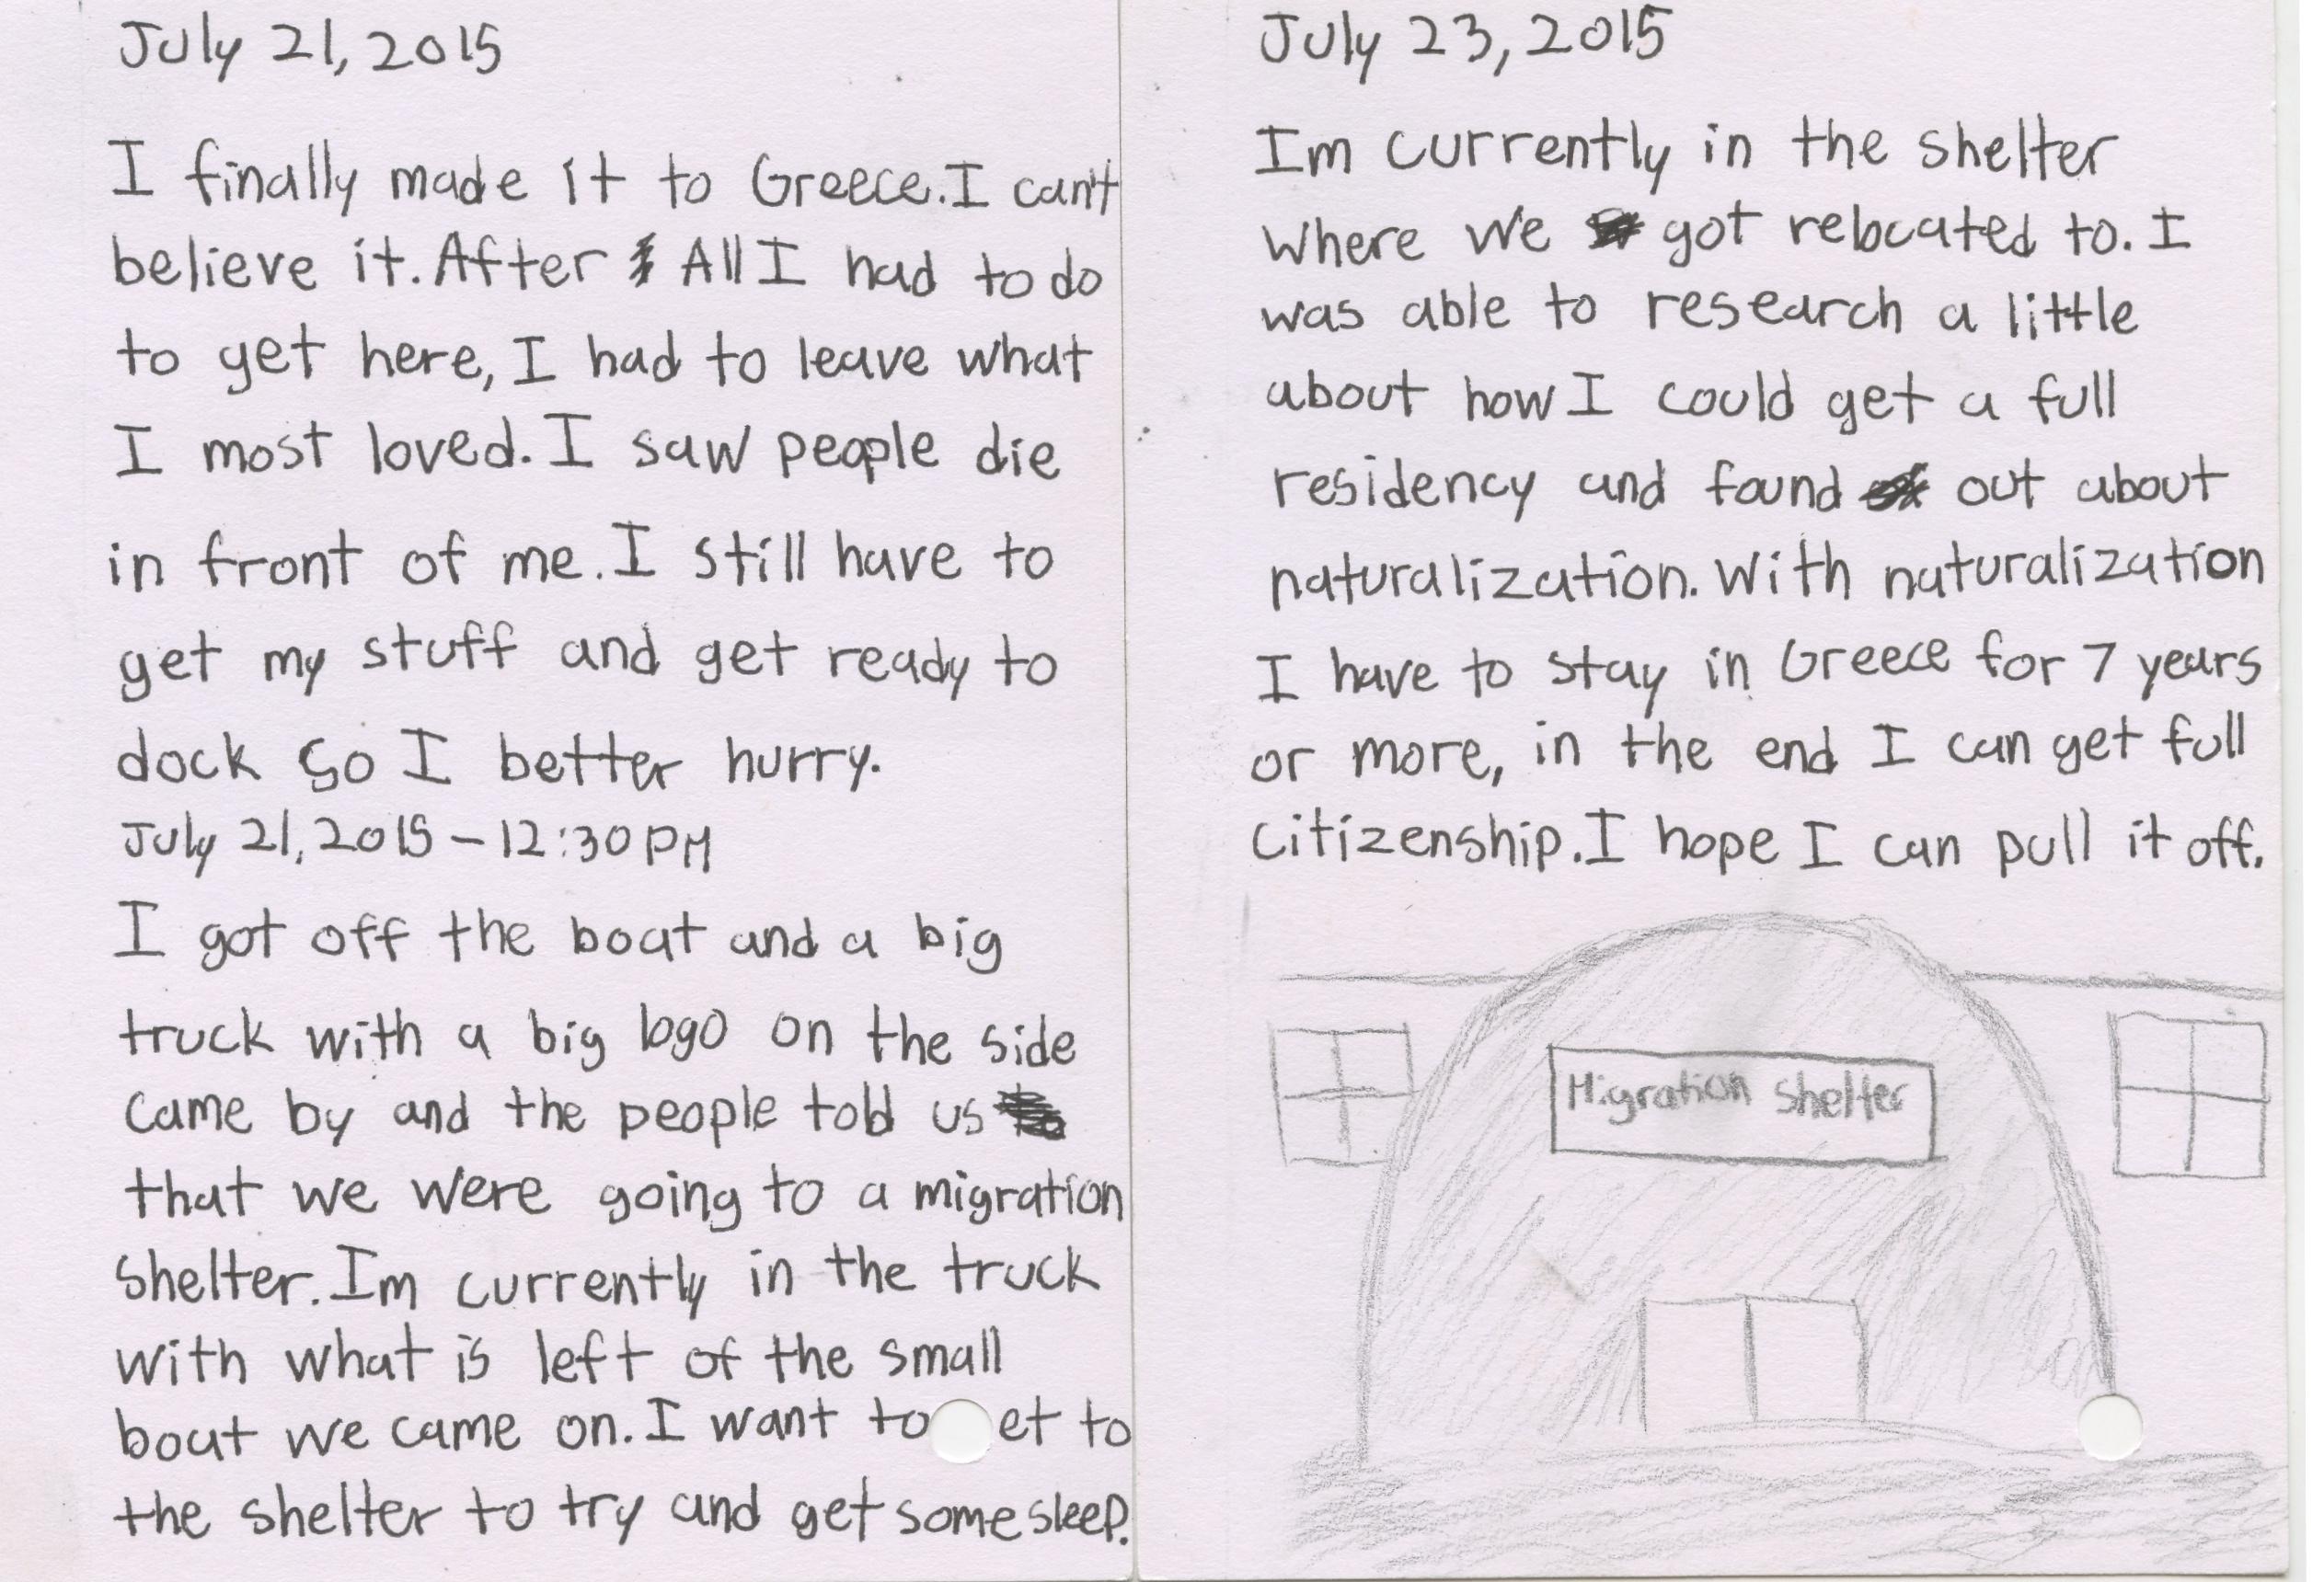 July 21, 2015
I finally made it to Greece. I can't
believe it. After All I had to do
to get here, I had to leave what
I most loved. I saw people die
in front of me. I still have to
get my stuff and get ready to
dock so I better hurry.
July 21, 2015 - 12:30 PM
I got off the boat and a big
truck with a big logo on the side
came by and the people told us
that we were going to a migration
shelter. Im currently in the truck
with what is left of the small
boat we came on. I want to et to
the shelter to try and get some sleep.
July 23, 2015
Im currently in the shelter
where we got relocated to. I
was able to research a little
about how I could get a full
residency and found out about
naturalization. With naturalization
I have to stay in Greece for 7 years
or more, in the end I can get full
citizenship. I hope I can pull it off.
Migration Shelter